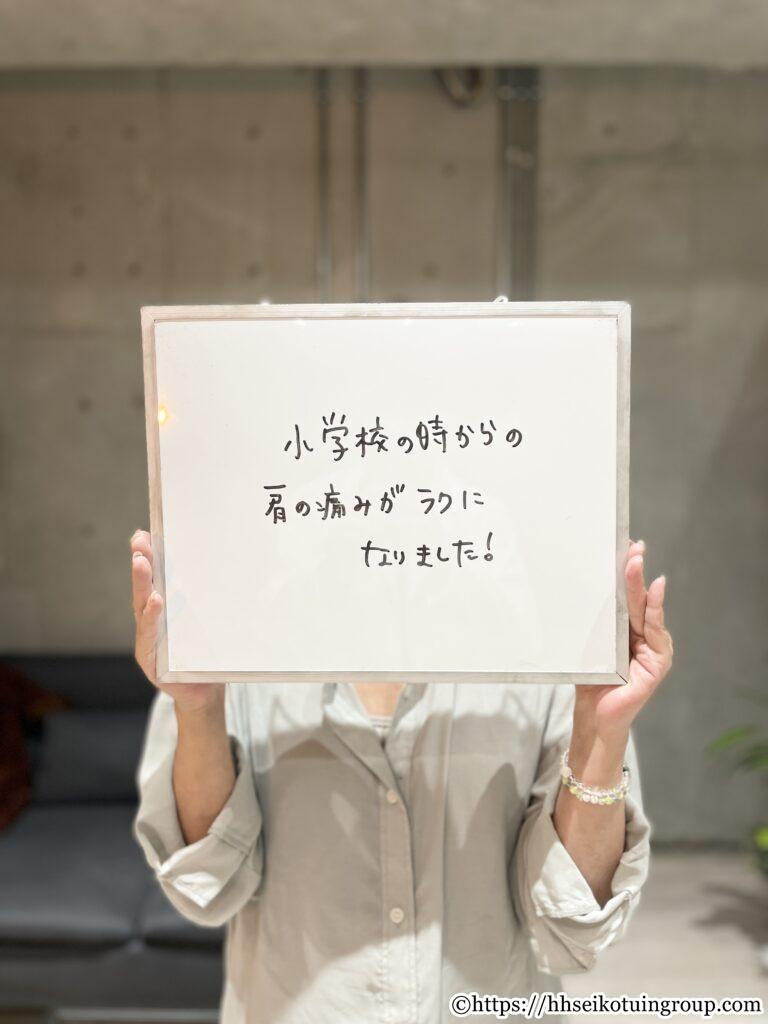 小学校の時からの
肩の痛みがラクに
なりました!
©https://hhseikotuingroup.com